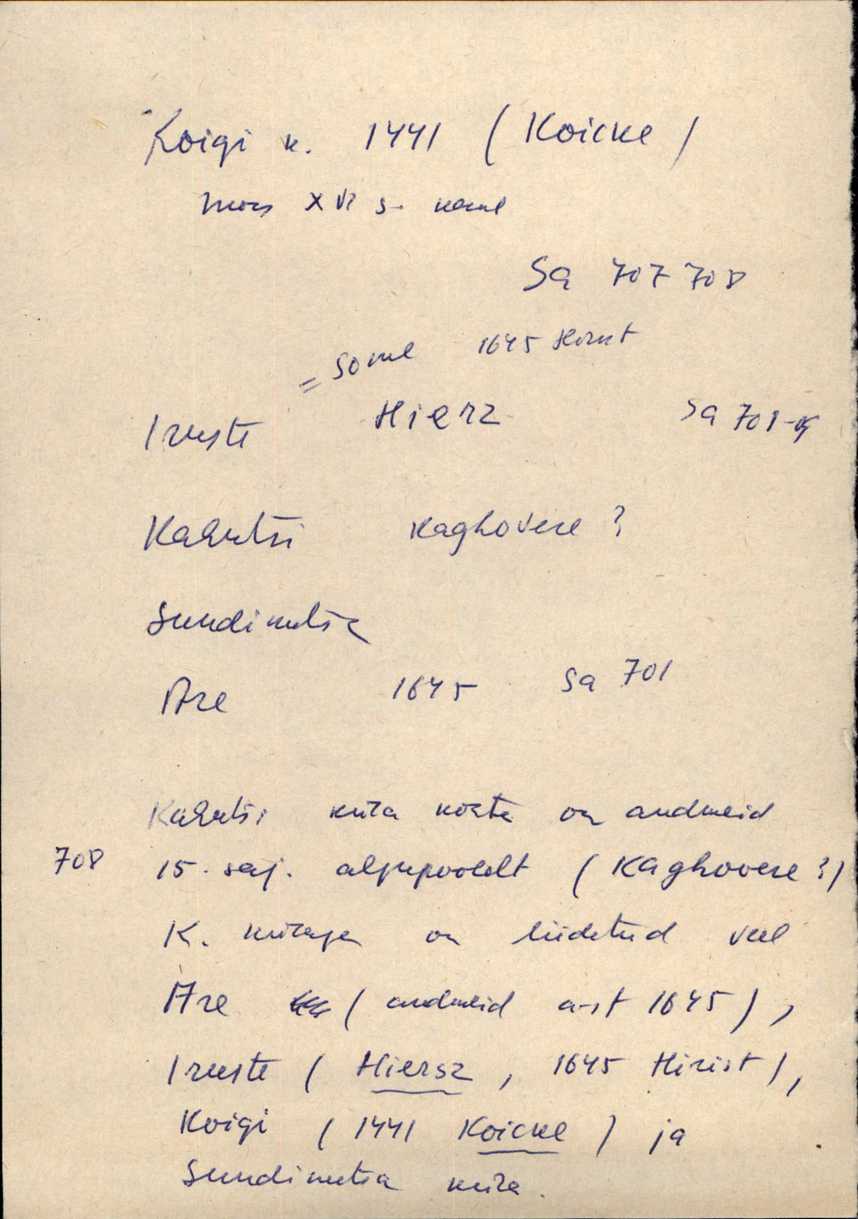 Koigi k. 1441 (Koicke)
mõis XVI s.
Sa 707 708
= some 1645 Hirist
Iruste Hierz Sa 708-9
Kahutsi Kaghovere?
Sundimetsa
Are 1645 Sa 701
Kahutsi küla kohta on andmeid
708 15. saj. algupoolelt (Kaghovere?)
K. külaga on liidetud veel
Are (andmeid a-st 1645),
Iruste (Hiersz, 1645 Hirist),
Koigi (1441 Koicke) ja
Sundimetsa küla.